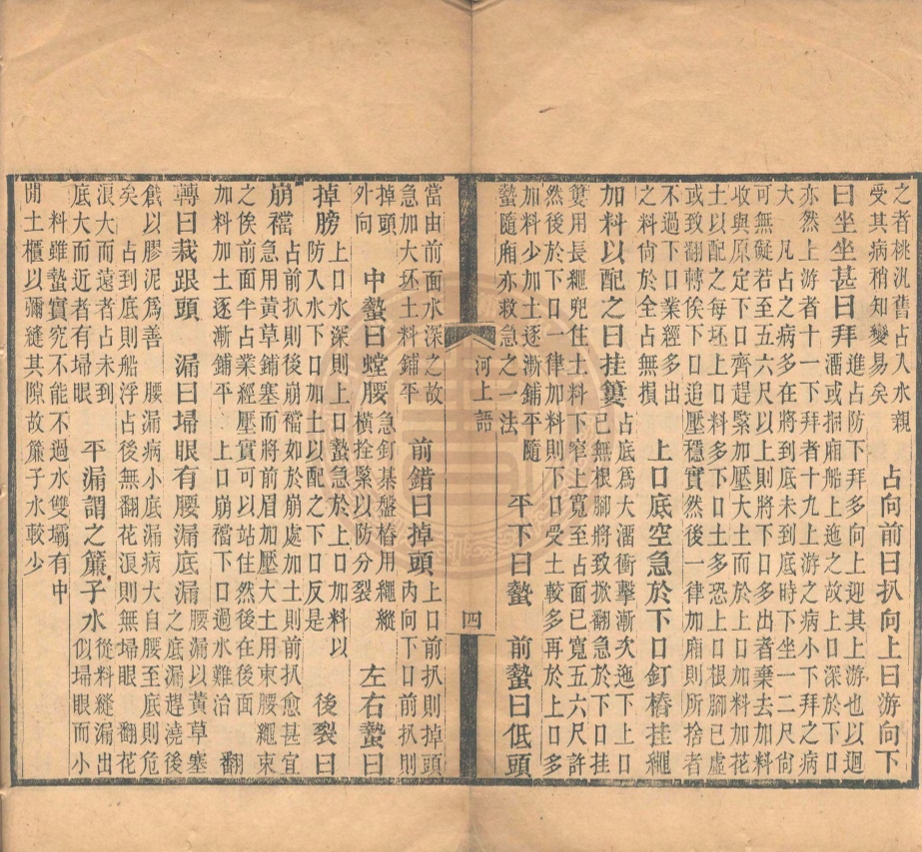 之者桃汛舊占入水親
受其病稍知變易矣
占向前曰扒向上曰游向下
曰坐坐甚曰拜
進占防下拜多向上迎其上游也以迴
溜或捆廂船上之拖之故上口深於下口
亦然上游者十一下拜者十九上游之病小下拜之病
大 凡占之病多在將到底未到底時下坐一二尺尙
可無礙若至五六尺以上則將下口多出者棄去加料
收與原定下口齊趕緊加壓大土而於上口加料花
土以配之每坯上口料多下口土多恐上口根腳已虛
或致翻轉俟下口追壓穩實然後一律加廂則所捨者
不過下口業經多出
之料尙於全占無損
上口底空急於下口釘樁挂繩
加料以配之曰挂簍
占底爲大溜衝擊漸次迤下上口
已無根腳將致掀翻急於下口挂
簍用長繩兜住土料下窄上寬至占面已寬五六尺多許
然後於下口一律加料則下口受土較多再於上口多
加料少加土逐漸鋪平隨
蟄隨廂亦救急之一法
平下曰蟄 前蟄曰低頭
河上語
四
當由前面水深之故
急加大坯土料鋪平
前錯曰掉頭
上口前扒則掉頭
內向下口前扒則
掉頭
外向
中蟄曰螳腰
急釘基盤樁用繩縱
橫拴緊以防分裂
左右蟄曰
掉膀
上口水深則上口蟄急於上口加料以
防入水下口加土以配之下口反是
後裂曰
崩襠
占前扒則後崩襠如於崩處加土則前扒愈甚宜
急用黃草鋪塞而將前眉加壓大土用束腰繩束
之俟前面半占業經壓實可以站住然後在後面
加料加土逐漸鋪平 上口崩襠下口過水難治
翻
轉曰栽跟頭 漏曰埽眼有腰漏底漏
腰漏以黃草塞
之底漏趕澆後
戧以膠泥爲善 腰漏病小底漏病大自腰至底則危
矣 占到底則船浮占後無翻花浪則無埽眼 翻花
浪大而遠者占未到
底大而近者有埽眼
平漏謂之簾子水
從料縫漏出
似埽眼而小
料雖蟄實究不能不過水雙壩有中
閒土櫃以彌縫其隙故簾子水較少